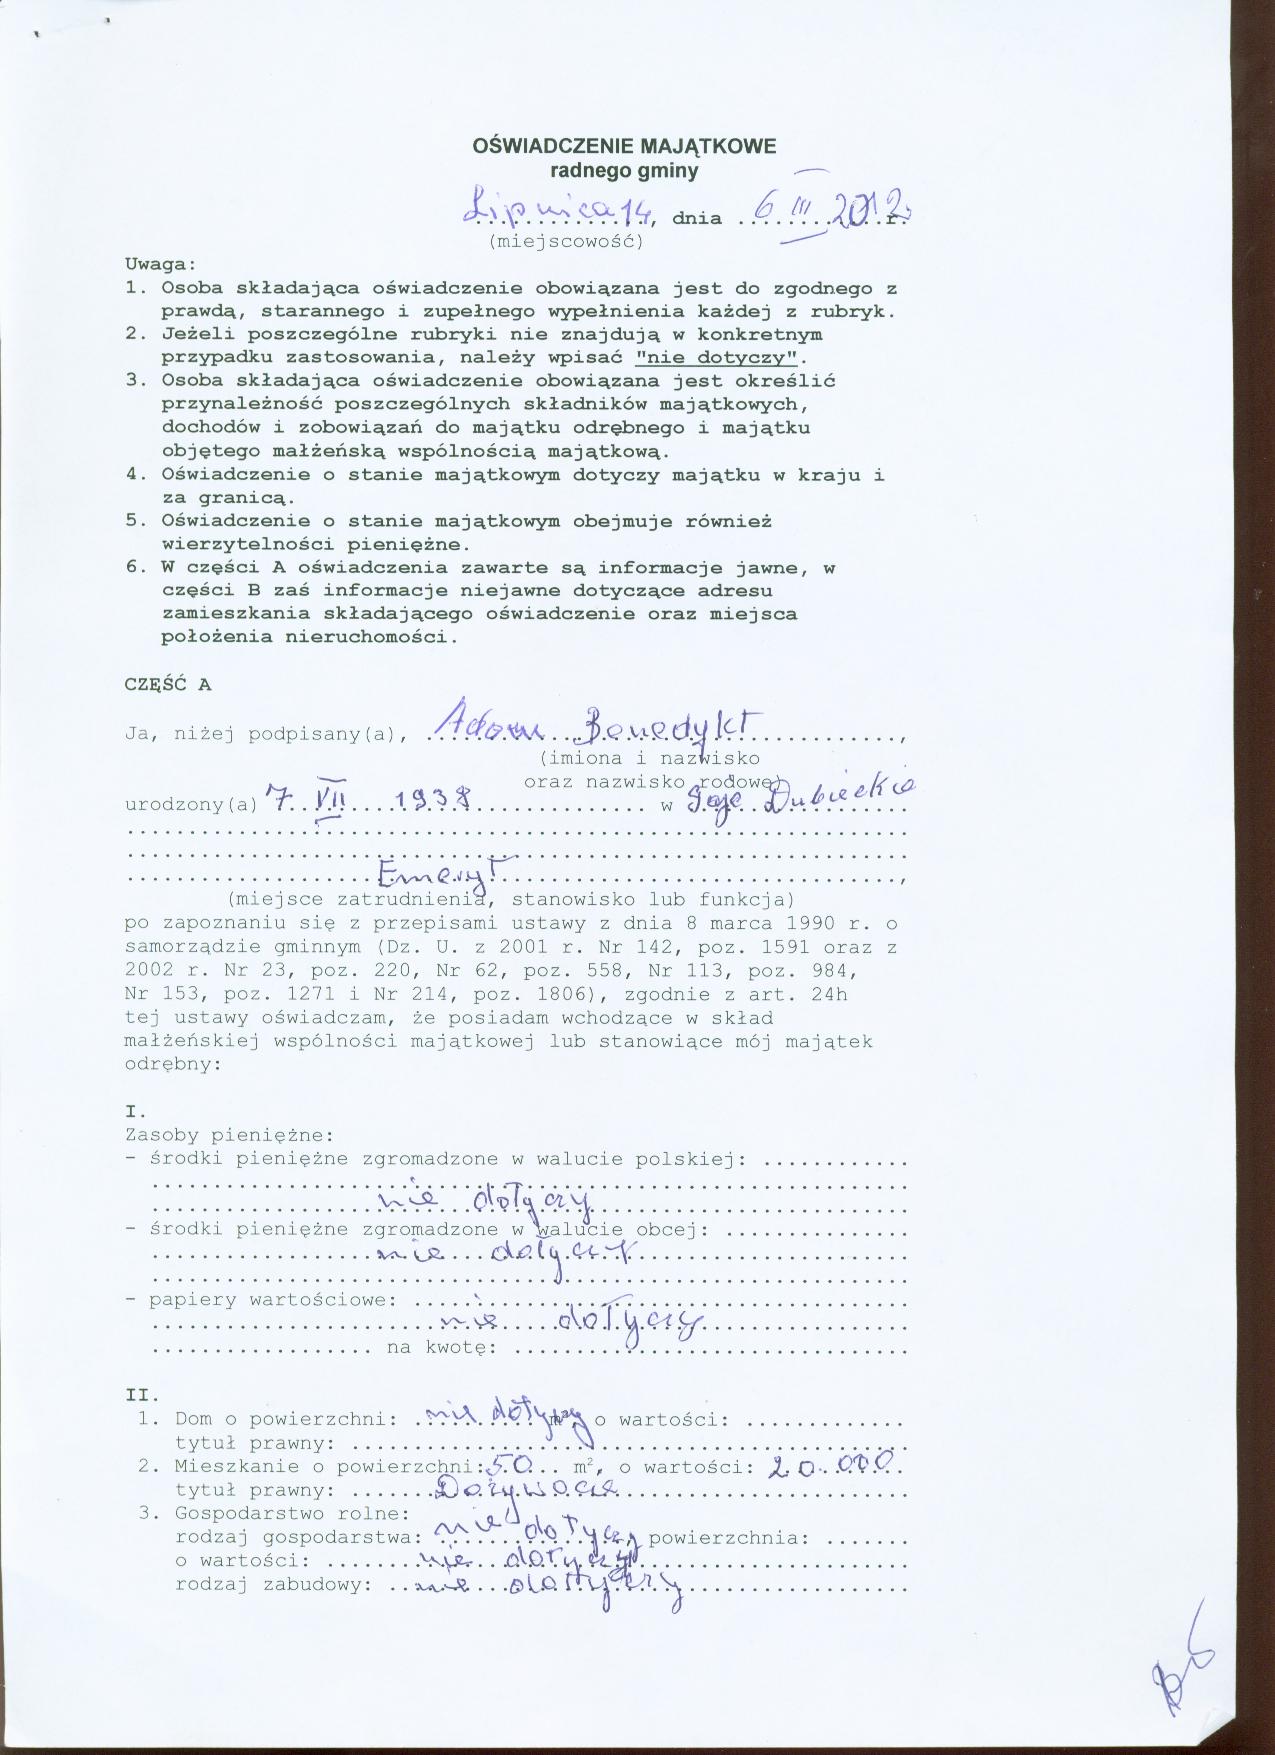 OŚWIADCZENIE MAJĄTKOWE
radnego gminy
Lipnica 14, dnia 6 III 2012 r.
(miejscowość)
Uwaga:
1. Osoba składająca oświadczenie obowiązana jest do zgodnego z
prawdą, starannego i zupełnego wypełnienia każdej z rubryk.
2. Jeżeli poszczególne rubryki nie znajdują w konkretnym
przypadku zastosowania, należy wpisać "nie dotyczy".
3. Osoba składająca oświadczenie obowiązana jest określić
przynależność poszczególnych składników majątkowych,
dochodów i zobowiązań do majątku odrębnego i majątku
objętego małżeńską wspólnością majątkową.
4. Oświadczenie o stanie majątkowym dotyczy majątku w kraju i
za granicą.
5. Oświadczenie o stanie majątkowym obejmuje również
wierzytelności pieniężne.
6. W części A oświadczenia zawarte są informacje jawne, w
części B zaś informacje niejawne dotyczące adresu
zamieszkania składającego oświadczenie oraz miejsca
położenia nieruchomości.
CZĘŚĆ A
Ja, niżej podpisany(a), Adam Benedykt,
(imiona i nazwisko
oraz nazwisko rodowe)
urodzony(a) 7 VII 1938 w Dubieckie
Emeryt,
(miejsce zatrudnienia, stanowisko lub funkcja)
po zapoznaniu się z przepisami ustawy z dnia 8 marca 1990 r. o
samorządzie gminnym (Dz. U. z 2001 r. Nr 142, poz. 1591 oraz z
2002 r. Nr 23, poz. 220, Nr 62, poz. 558, Nr 113, poz. 984,
Nr 153, poz. 1271 i Nr 214, poz. 1806), zgodnie z art. 24h
tej ustawy oświadczam, że posiadam wchodzące w skład
małżeńskiej wspólności majątkowej lub stanowiące mój majątek
odrębny:
I.
Zasoby pieniężne:
- środki pieniężne zgromadzone w walucie polskiej:
nie dotyczy
- środki pieniężne zgromadzone w walucie obcej:
nie dotyczy
- papiery wartościowe:
nie dotyczy
na kwotę:
II.
1. Dom o powierzchni: nie dotyczy m², o wartości:
tytuł prawny:
2. Mieszkanie o powierzchni: 50 m², o wartości: 20.000
tytuł prawny: Dożywocie
3. Gospodarstwo rolne:
rodzaj gospodarstwa: nie dotyczy, powierzchnia:
o wartości: nie dotyczy
rodzaj zabudowy: nie dotyczy